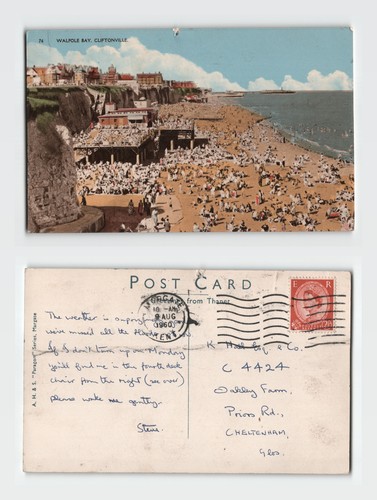 74 WALPOLE BAY, CLIFTONVILLE.
POST CARD
from Thanet
MARGATE
KENT
10 - AM
9 AUG
1960
E R
The weather is
we've missed all the
If I don't turn up on Monday
you'll find me in the fourth deck
chair from the right (see over)
please wake me gently.
Steve.
& Co.
C 4424
Oakley Farm,
Priors Rd.,
CHELTENHAM,
Glos.
A. H. & S. "Paragon" Series, Margate